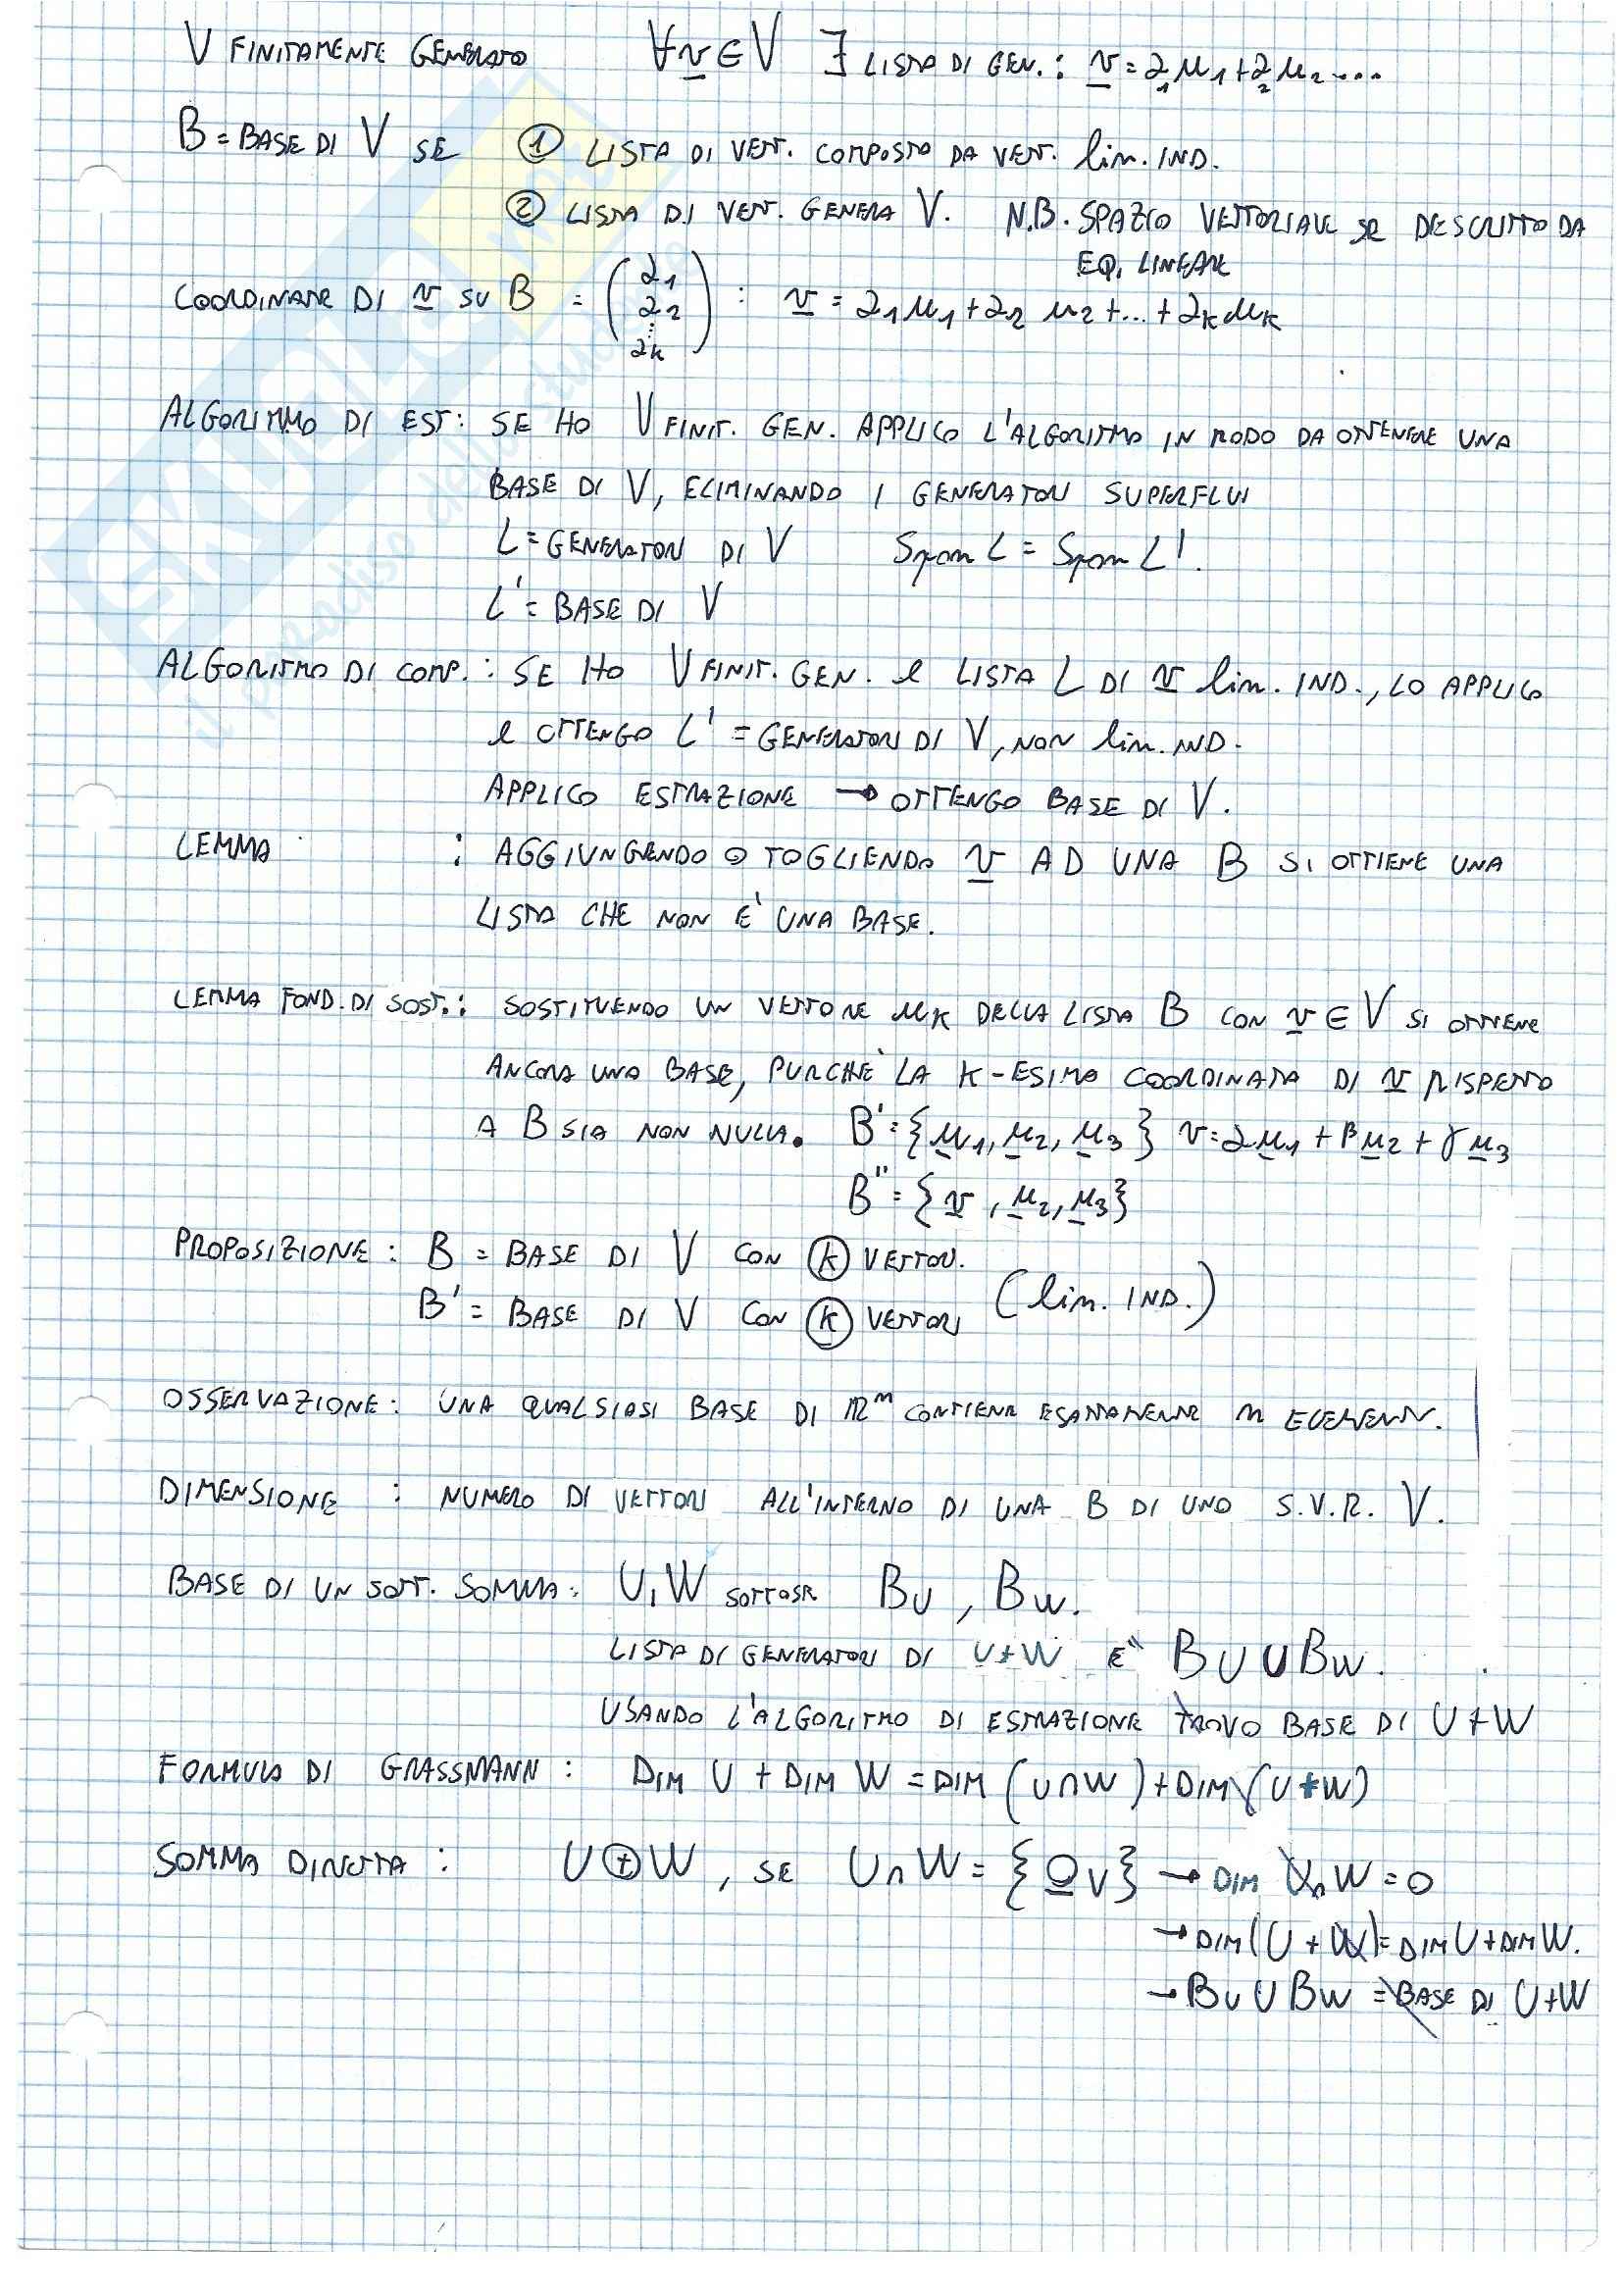 V FINITAMENTE GENERATO ∀v∈V ∃ LISTA DI GEN.: v = α₁u₁+α₂u₂....
B = BASE DI V SE ① LISTA DI VETT. COMPOSTO DA VETT. lin. IND.
② LISTA DI VETT. GENERA V. N.B. SPAZIO VETTORIALE SE DESCRITTO DA
EQ. LINEARE
COORDINATE DI v SU B = (α₁ α₂ ⋮ αk) : v = α₁u₁+α₂u₂+...+αkuk
ALGORITMO DI EST: SE HO V FINIT. GEN. APPLICO L'ALGORITMO IN MODO DA OTTENERE UNA
BASE DI V, ELIMINANDO I GENERATORI SUPERFLUI
L = GENERATORI DI V Span L = Span L'.
L' = BASE DI V
ALGORITMO DI COMP.: SE HO V FINIT. GEN. e LISTA L DI v lin. IND., LO APPLICO
e OTTENGO L' = GENERATORI DI V, NON lin. IND.
APPLICO ESTRAZIONE → OTTENGO BASE DI V.
LEMMA : AGGIUNGENDO O TOGLIENDO v AD UNA B SI OTTIENE UNA
LISTA CHE NON E' UNA BASE.
LEMMA FOND. DI SOST.: SOSTITUENDO UN VETTORE uk DELLA LISTA B CON v∈V SI OTTIENE
ANCORA UNA BASE, PURCHÈ LA K-ESIMA COORDINATA DI v RISPETTO
A B SIA NON NULLA. B' = {u₁, u₂, u₃} v = αu₁ + βu₂ + γu₃
B'' = {v, u₂, u₃}
PROPOSIZIONE: B = BASE DI V CON ⓚ VETTORI.
B' = BASE DI V CON ⓚ VETTORI (lin. IND.)
OSSERVAZIONE: UNA QUALSIASI BASE DI ℝⁿ CONTIENE ESATTAMENTE n ELEMENTI.
DIMENSIONE : NUMERO DI VETTORI ALL'INTERNO DI UNA B DI UNO S.V.R. V.
BASE DI UN SOTT. SOMMA: U, W SOTTOSP BU, BW.
LISTA DI GENERATORI DI U+W E' BU ∪ BW.
USANDO L'ALGORITMO DI ESTRAZIONE TROVO BASE DI U+W
FORMULA DI GRASSMANN: DIM U + DIM W = DIM (U∩W) + DIM (U+W)
SOMMA DIRETTA: U⊕W, SE U∩W = {0V} → DIM U∩W = 0
→ DIM(U+W) = DIM U + DIM W.
→ BU ∪ BW = BASE DI U+W